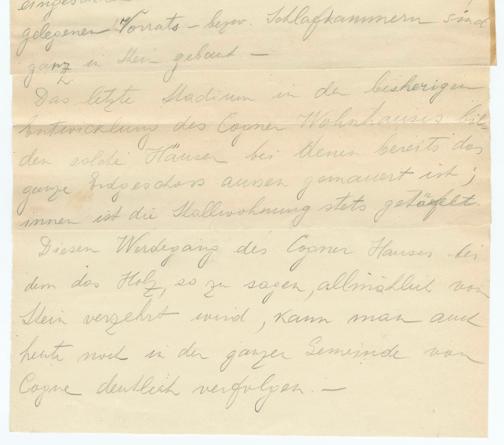 gelegenen Vorrats- bezw. Schlafkammern sind
ganz in Stein gebaut —
Das letzte Stadium in der bisherigen
Entwicklung des Cogner Wohnhauses bil-
den solche Häuser bei denen bereits das
ganze Erdgeschoss aussen gemauert ist;
innen ist die Stallwohnung stets getäfelt.
Diesen Werdegang des Cogner Hauses bei
dem das Holz, so zu sagen, allmählich von
Stein verzehrt wird, kann man auch
heute noch in der ganzer Gemeinde von
Cogne deutlich verfolgen. —